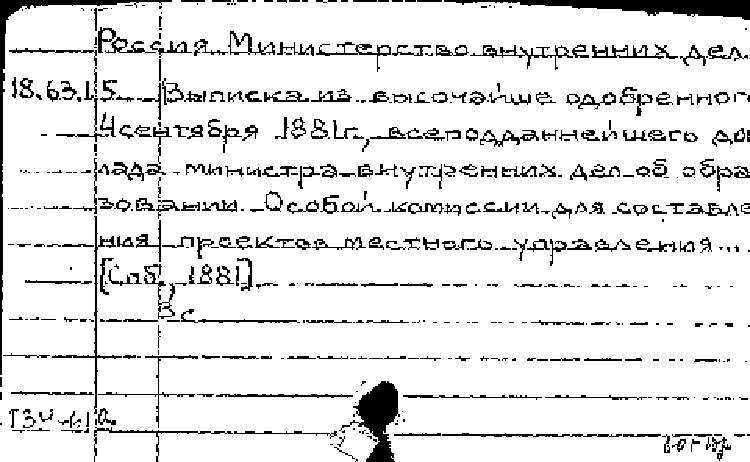 Россия. Министерство внутренних дел.
18.63.1.5 Выписка из высочайше одобренного
4 сентября 1881 г., всеподданнейшего док
лада министра внутренних дел об обра
зовании Особой комиссии для составле
ния проектов местного управления...
[Спб., 1881]
8 с